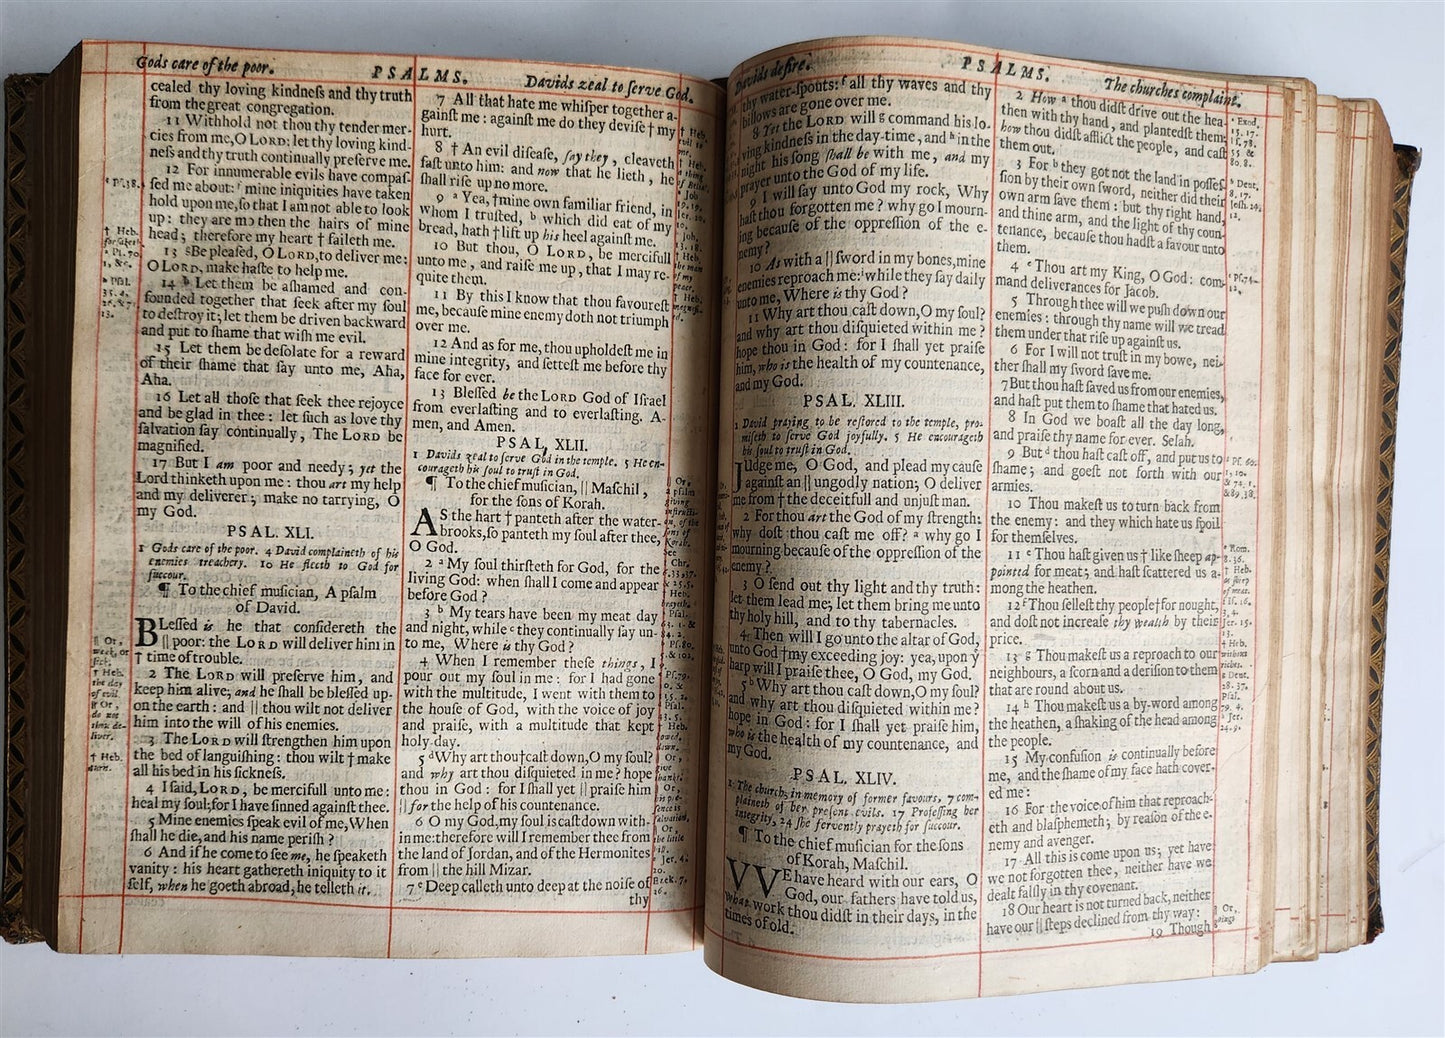 Gods care of the poor. PSALMS. Davids zeal to ſerve God.
cealed thy loving kindneſs and thy truth
from the great congregation.
11 Withhold not thou thy tender mer-
cies from me, O LORD: let thy loving kind-
neſs and thy truth continually preſerve me.
12 For innumerable evils have compaſ-
ſed me about: mine iniquities have taken
hold upon me, ſo that I am not able to look
up: they are mo then the hairs of mine
head; therefore my heart † faileth me.
13 Be pleaſed, O LORD, to deliver me:
O LORD, make haſte to help me.
14 Let them be aſhamed and con-
founded together that ſeek after my ſoul
to deſtroy it; let them be driven backward
and put to ſhame that wiſh me evil.
15 Let them be deſolate for a reward
of their ſhame that ſay unto me, Aha,
Aha.
16 Let all thoſe that ſeek thee rejoyce
and be glad in thee: let ſuch as love thy
ſalvation ſay continually, The LORD be
magnified.
17 But I am poor and needy; yet the
Lord thinketh upon me: thou art my help
and my deliverer; make no tarrying, O
my God.
PSAL. XLI.
1 Gods care of the poor. 4 David complaineth of his
enemies treachery. 10 He fleeth to God for
ſuccour.
¶ To the chief muſician, A pſalm
of David.
BLeſſed is he that conſidereth the
|| poor: the LORD will deliver him in
† time of trouble.
2 The LORD will preſerve him, and
keep him alive; and he ſhall be bleſſed up-
on the earth: and || thou wilt not deliver
him into the will of his enemies.
3 The LORD will ſtrengthen him upon
the bed of languiſhing: thou wilt † make
all his bed in his ſickneſs.
4 I ſaid, LORD, be mercifull unto me:
heal my ſoul; for I have ſinned againſt thee.
5 Mine enemies ſpeak evil of me, When
ſhall he die, and his name periſh?
6 And if he come to ſee me, he ſpeaketh
vanity: his heart gathereth iniquity to it
ſelf, when he goeth abroad, he telleth it.
* Pſ. 38.
† Heb.
forſaketh.
* Pſ. 70.
1, &c.
* Pſal.
35. 4.
26. & 7.
13.
|| Or,
weak, or
ſick.
† Heb.
the day
of evil.
|| Or,
do not
thou de-
liver.
† Heb.
turn.
7 All that hate me whiſper together a-
gainſt me: againſt me do they deviſe † my
hurt.
8 † An evil diſeaſe, ſay they, cleaveth
faſt unto him: and now that he lieth, he
ſhall riſe up no more.
9 a Yea, † mine own familiar friend, in
whom I truſted, b which did eat of my
bread, hath † lift up his heel againſt me.
10 But thou, O LORD, be mercifull
unto me, and raiſe me up, that I may re-
quite them.
11 By this I know that thou favoureſt
me, becauſe mine enemy doth not triumph
over me.
12 And as for me, thou upholdeſt me in
mine integrity, and ſetteſt me before thy
face for ever.
13 Bleſſed be the LORD God of Iſrael
from everlaſting and to everlaſting. A-
men, and Amen.
PSAL. XLII.
1 Davids zeal to ſerve God in the temple. 5 He en-
courageth his ſoul to truſt in God.
¶ To the chief muſician, || Maſchil,
for the ſons of Korah.
AS the hart † panteth after the water-
brooks, ſo panteth my ſoul after thee,
O God.
2 a My ſoul thirſteth for God, for the
living God: when ſhall I come and appear
before God?
3 b My tears have been my meat day
and night, while c they continually ſay un-
to me, Where is thy God?
4 When I remember theſe things, I
pour out my ſoul in me: for I had gone
with the multitude, I went with them to
the houſe of God, with the voice of joy
and praiſe, with a multitude that kept
holy-day.
5 d Why art thou † caſt down, O my ſoul?
and why art thou diſquieted in me? hope
thou in God: for I ſhall yet || praiſe him
|| for the help of his countenance.
6 O my God, my ſoul is caſt down with-
in me: therefore will I remember thee from
the land of Jordan, and of the Hermonites
from || the hill Mizar.
7 e Deep calleth unto deep at the noiſe of
thy
Davids deſire. PSALMS. The churches complaint.
thy water-ſpouts: f all thy waves and thy
billows are gone over me.
8 Yet the LORD will g command his lo-
ving kindneſs in the day-time, and h in the
night his ſong ſhall be with me, and my
prayer unto the God of my life.
9 I will ſay unto God my rock, Why
haſt thou forgotten me? why go I mourn-
ing becauſe of the oppreſſion of the e-
nemy?
10 As with a || ſword in my bones, mine
enemies reproach me: while they ſay daily
unto me, Where is thy God?
11 Why art thou caſt down, O my ſoul?
and why art thou diſquieted within me?
hope thou in God: for I ſhall yet praiſe
him, who is the health of my countenance,
and my God.
PSAL. XLIII.
1 David praying to be reſtored to the temple, pro-
miſeth to ſerve God joyfully. 5 He encourageth
his ſoul to truſt in God.
JUdge me, O God, and plead my cauſe
againſt an || ungodly nation; O deliver
me from † the deceitfull and unjuſt man.
2 For thou art the God of my ſtrength:
why doſt thou caſt me off? a why go I
mourning becauſe of the oppreſſion of the
enemy?
3 O ſend out thy light and thy truth:
let them lead me; let them bring me unto
thy holy hill, and to thy tabernacles.
4 Then will I go unto the altar of God,
unto God † my exceeding joy: yea, upon ẏ
harp will I praiſe thee, O God, my God.
5 b Why art thou caſt down, O my ſoul?
and why art thou diſquieted within me?
hope in God: for I ſhall yet praiſe him,
who is the health of my countenance, and
my God.
PSAL. XLIV.
1 The church, in memory of former favours, 7 com-
plaineth of her preſent evils. 17 Profeſſing her
integrity, 24 ſhe fervently prayeth for ſuccour.
¶ To the chief muſician for the ſons
of Korah, Maſchil.
VVE have heard with our ears, O
God, our fathers have told us,
what work thou didſt in their days, in the
times of old.
2 How a thou didſt drive out the hea-
then with thy hand, and plantedſt them;
how thou didſt afflict the people, and caſt
them out.
3 For b they got not the land in poſſeſ-
ſion by their own ſword, neither did their
own arm ſave them: but thy right hand,
and thine arm, and the light of thy coun-
tenance, becauſe thou hadſt a favour unto
them.
4 c Thou art my King, O God: com-
mand deliverances for Jacob.
5 Through thee will we puſh down our
enemies: through thy name will we tread
them under that riſe up againſt us.
6 For I will not truſt in my bowe, nei-
ther ſhall my ſword ſave me.
7 But thou haſt ſaved us from our enemies,
and haſt put them to ſhame that hated us.
8 In God we boaſt all the day long,
and praiſe thy name for ever. Selah.
9 But d thou haſt caſt off, and put us to
ſhame; and goeſt not forth with our
armies.
10 Thou makeſt us to turn back from
the enemy: and they which hate us ſpoil
for themſelves.
11 e Thou haſt given us † like ſheep ap-
pointed for meat; and haſt ſcattered us a-
mong the heathen.
12 f Thou ſelleſt thy people † for nought,
and doſt not increaſe thy wealth by their
price.
13 g Thou makeſt us a reproach to our
neighbours, a ſcorn and a deriſion to them
that are round about us.
14 h Thou makeſt us a by-word among
the heathen, a ſhaking of the head among
the people.
15 My confuſion is continually before
me, and the ſhame of my face hath cover-
ed me:
16 For the voice of him that reproach-
eth and blaſphemeth; by reaſon of the e-
nemy and avenger.
17 All this is come upon us; yet have
we not forgotten thee, neither have we
dealt falſly in thy covenant.
18 Our heart is not turned back, neither
have our || ſteps declined from thy way:
19 Though
a Exod.
15. 17.
b Deut.
8. 17.
Joſh. 24.
12.
c Pſ. 74.
12.
d Pſ. 60.
1, 10.
& 74. 1.
& 89. 38.
e Rom.
8. 36.
† Heb.
as ſheep
of meat.
f Iſ. 52.
3, 4.
Jer. 15.
13.
† Heb.
without
riches.
g Deut.
28. 37.
Pſal.
79. 4.
h Jer.
24. 9.
|| Or,
goings